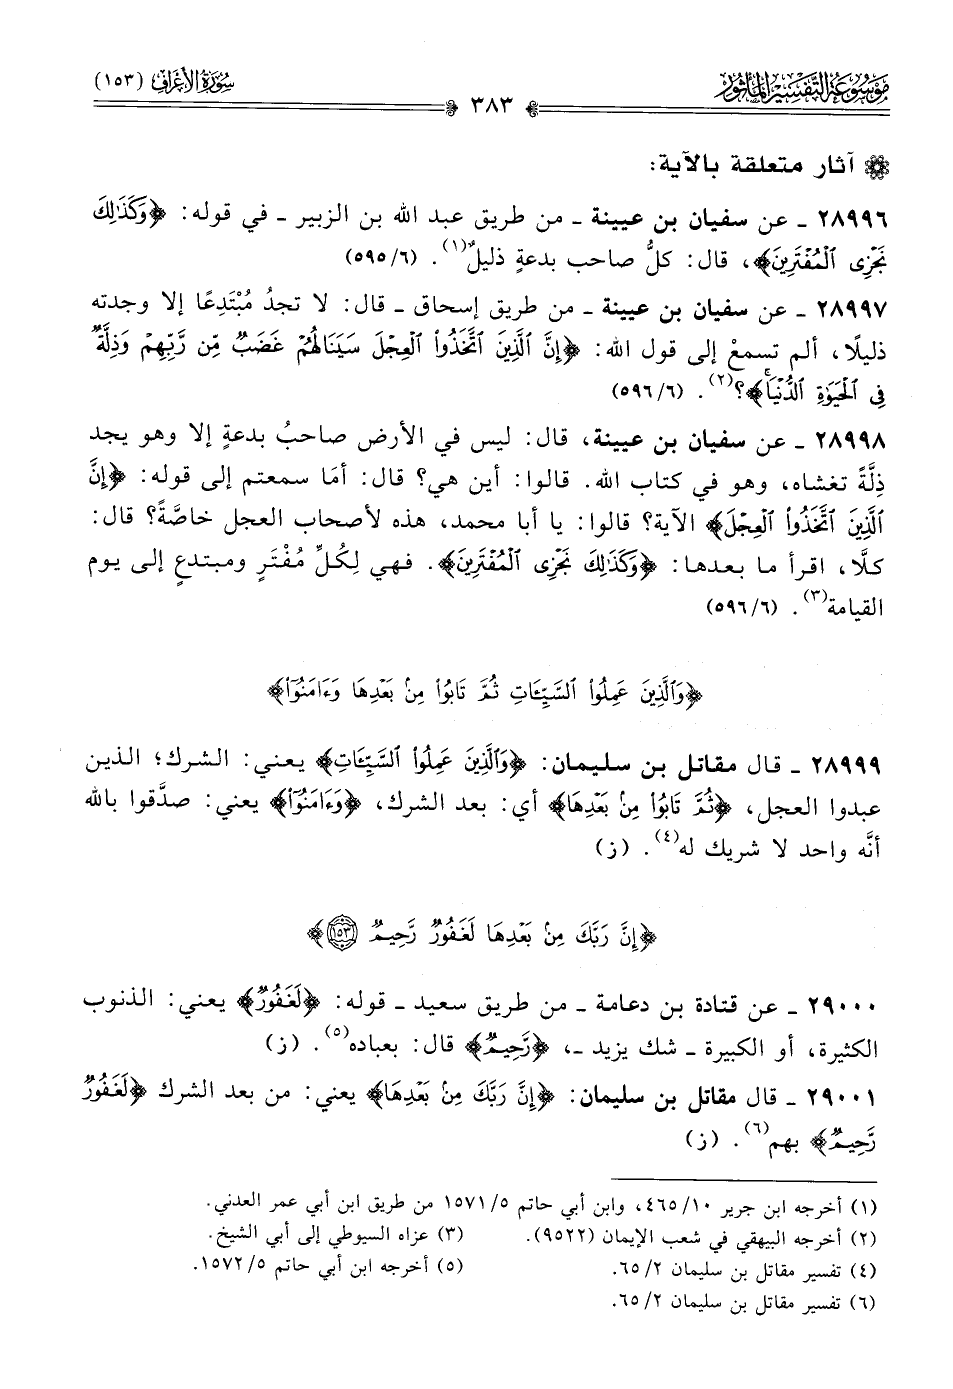 موسوعة التفسير المأثور
سورة الأعراف (١٥٣)
٣٨٣
آثار متعلقة بالآية:
٢٨٩٩٦ ـ عن سفيان بن عيينة ـ من طريق عبد الله بن الزبير ـ في قوله: ﴿وَكَذَٰلِكَ
نَجْزِى ٱلْمُفْتَرِينَ﴾، قال: كلُّ صاحب بدعةٍ ذليلٌ(١). (٥٩٥/٦)
٢٨٩٩٧ ـ عن سفيان بن عيينة ـ من طريق إسحاق ـ قال: لا تجدُ مُبْتَدِعًا إلا وجدته
ذليلًا، ألم تسمعْ إلى قول الله: ﴿إِنَّ ٱلَّذِينَ ٱتَّخَذُوا۟ ٱلْعِجْلَ سَيَنَالُهُمْ غَضَبٌ مِّن رَّبِّهِمْ وَذِلَّةٌ
فِى ٱلْحَيَوٰةِ ٱلدُّنْيَا﴾؟(٢). (٥٩٦/٦)
٢٨٩٩٨ ـ عن سفيان بن عيينة، قال: ليس في الأرض صاحبُ بدعةٍ إلا وهو يجد
ذِلَّةً تغشاه، وهو في كتاب الله. قالوا: أين هي؟ قال: أمَا سمعتم إلى قوله: ﴿إِنَّ
ٱلَّذِينَ ٱتَّخَذُوا۟ ٱلْعِجْلَ﴾ الآية؟ قالوا: يا أبا محمد، هذه لأصحاب العجل خاصَّةً؟ قال:
كلَّا، اقرأ ما بعدها: ﴿وَكَذَٰلِكَ نَجْزِى ٱلْمُفْتَرِينَ﴾. فهي لِكُلِّ مُفْتَرٍ ومبتدعٍ إلى يوم
القيامة(٣). (٥٩٦/٦)
﴿وَٱلَّذِينَ عَمِلُوا۟ ٱلسَّيِّـَٔاتِ ثُمَّ تَابُوا۟ مِنۢ بَعْدِهَا وَءَامَنُوٓا۟﴾
٢٨٩٩٩ ـ قال مقاتل بن سليمان: ﴿وَٱلَّذِينَ عَمِلُوا۟ ٱلسَّيِّـَٔاتِ﴾ يعني: الشرك؛ الذين
عبدوا العجل، ﴿ثُمَّ تَابُوا۟ مِنۢ بَعْدِهَا﴾ أي: بعد الشرك، ﴿وَءَامَنُوٓا۟﴾ يعني: صدَّقوا بالله
أنَّه واحد لا شريك له(٤). (ز)
﴿إِنَّ رَبَّكَ مِنۢ بَعْدِهَا لَغَفُورٌ رَّحِيمٌ ١٥٣﴾
٢٩٠٠٠ ـ عن قتادة بن دعامة ـ من طريق سعيد ـ قوله: ﴿لَغَفُورٌ﴾ يعني: الذنوب
الكثيرة، أو الكبيرة ـ شك يزيد ـ، ﴿رَّحِيمٌ﴾ قال: بعباده(٥). (ز)
٢٩٠٠١ ـ قال مقاتل بن سليمان: ﴿إِنَّ رَبَّكَ مِنۢ بَعْدِهَا﴾ يعني: من بعد الشرك ﴿لَغَفُورٌ
رَّحِيمٌ﴾ بهم(٦). (ز)
(١) أخرجه ابن جرير ٤٦٥/١٠، وابن أبي حاتم ١٥٧١/٥ من طريق ابن أبي عمر العدني.
(٢) أخرجه البيهقي في شعب الإيمان (٩٥٢٢). (٣) عزاه السيوطي إلى أبي الشيخ.
(٤) تفسير مقاتل بن سليمان ٦٥/٢. (٥) أخرجه ابن أبي حاتم ١٥٧٢/٥.
(٦) تفسير مقاتل بن سليمان ٦٥/٢.